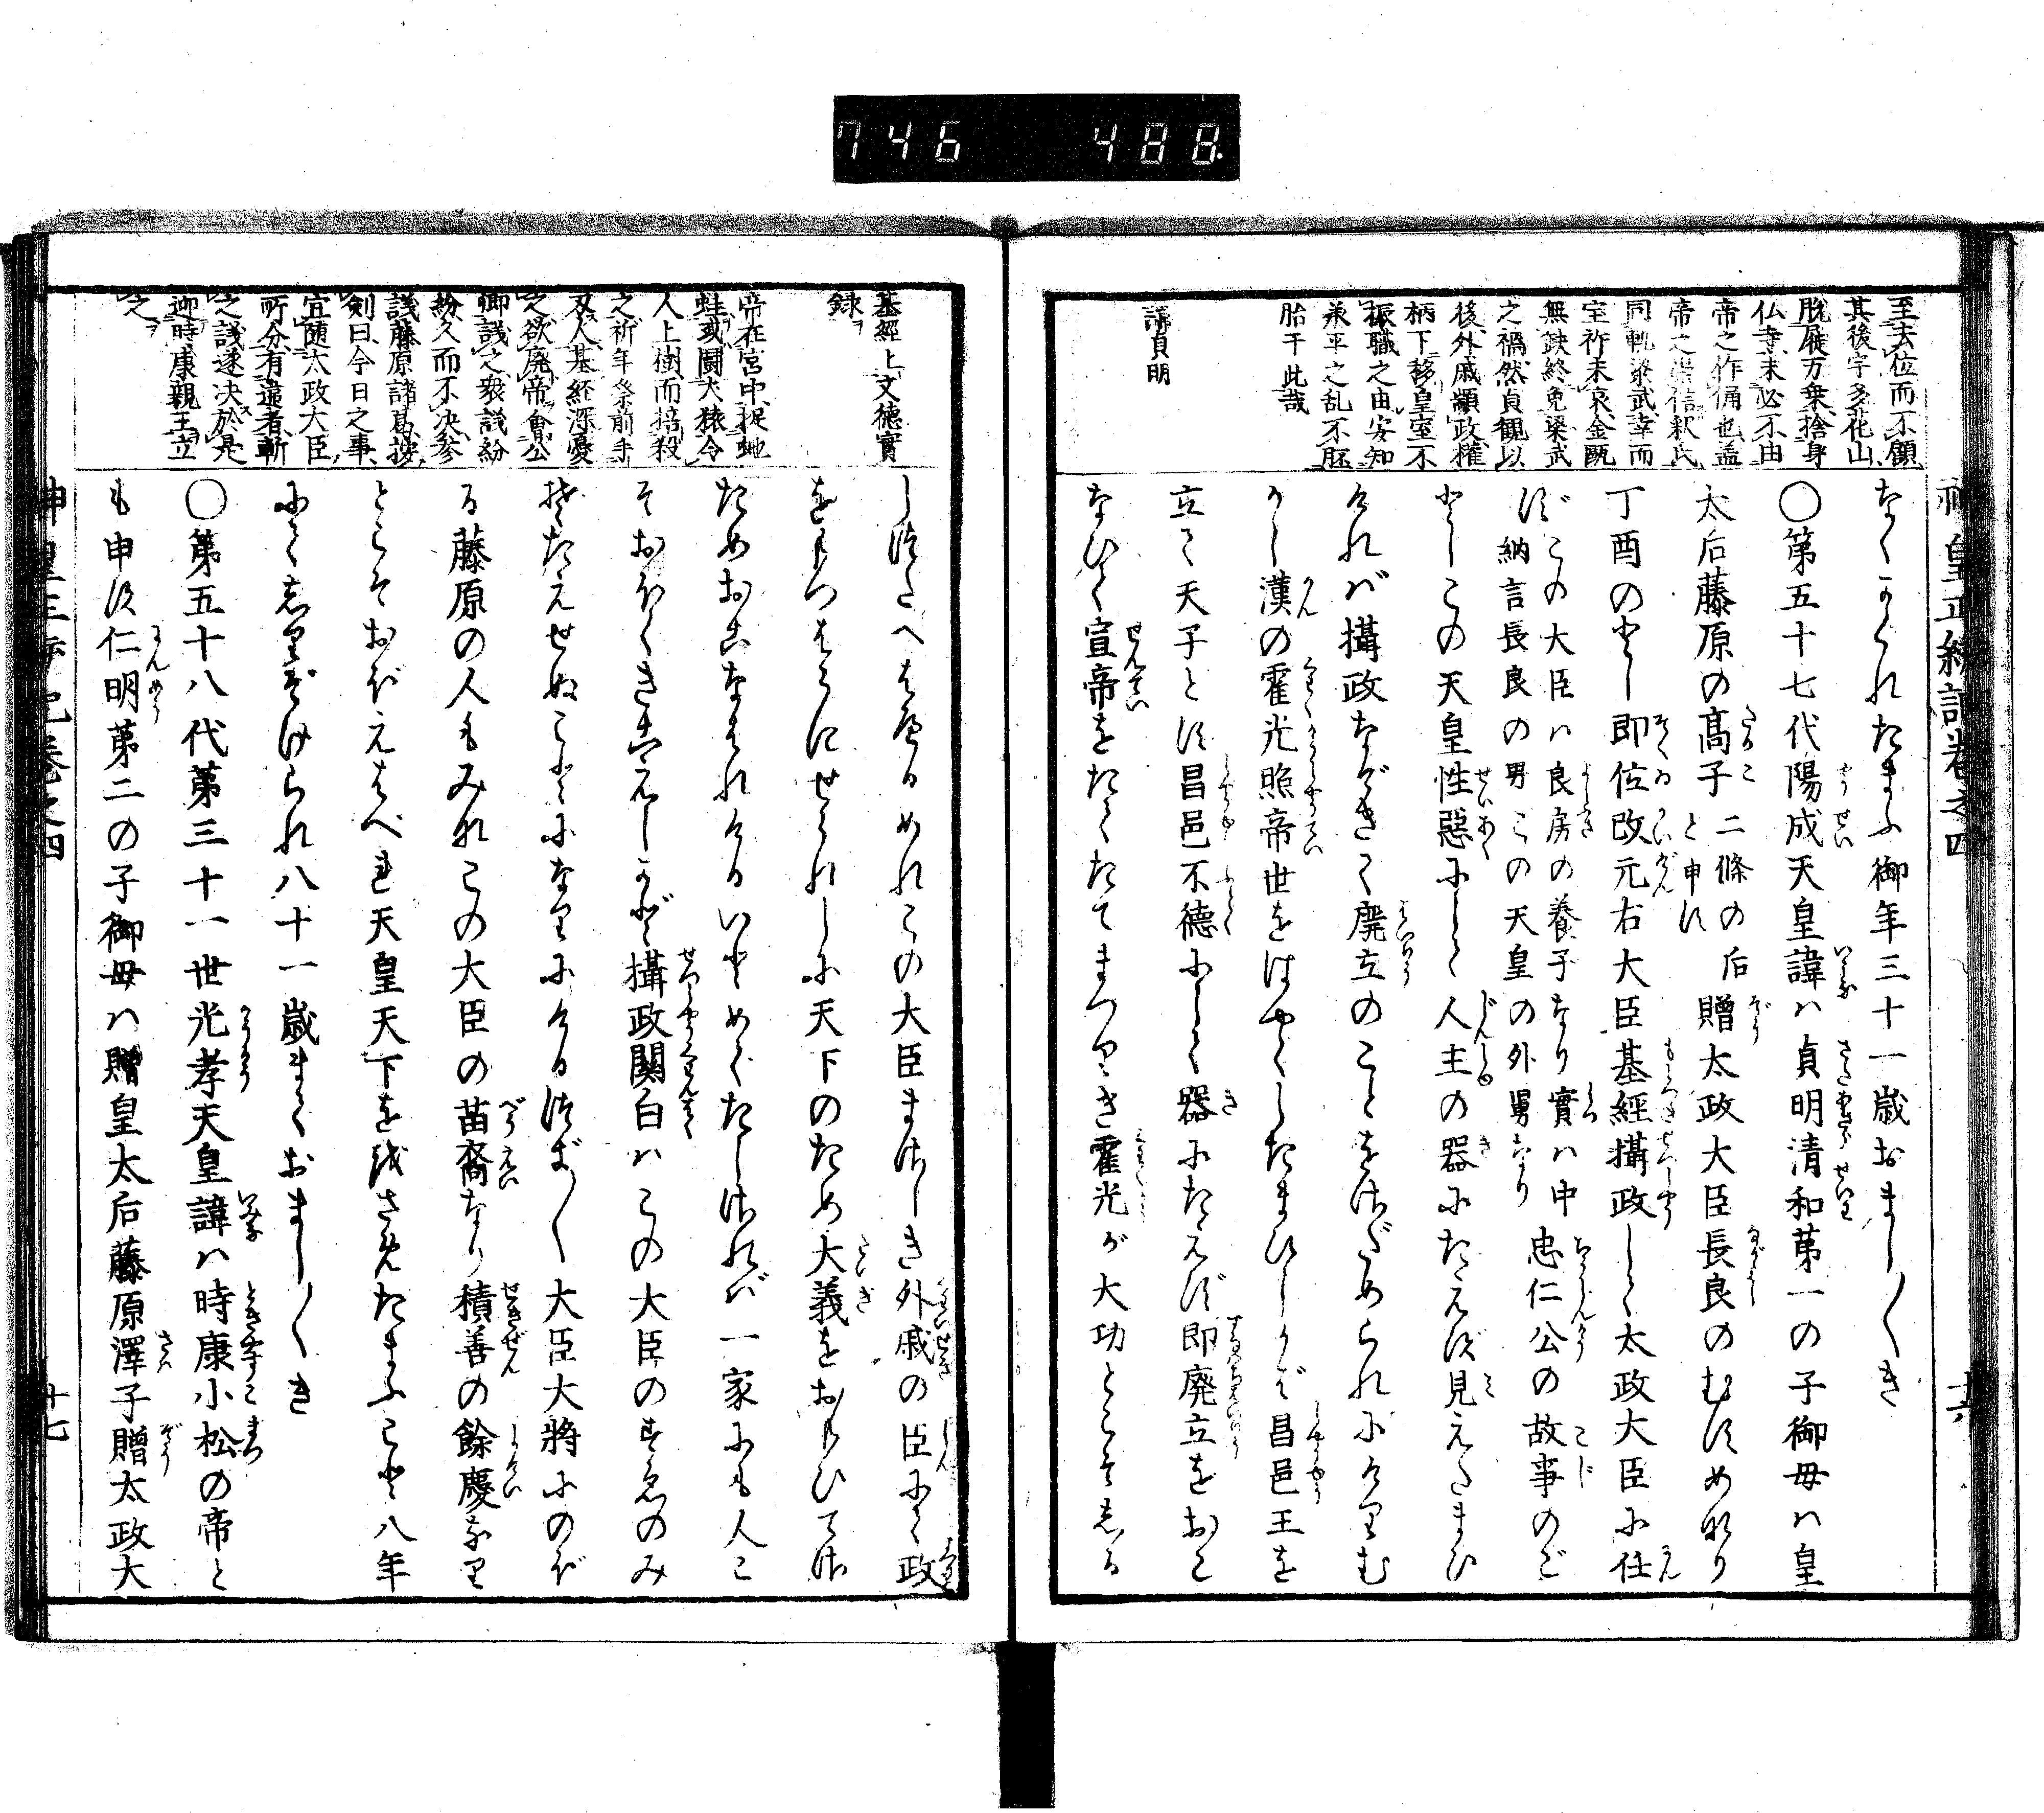 746 488.
至去位而不顧
其後宇多花山
脱屣万乗捨身
仏寺未必不由
帝之作俑也盖
帝之崇信釈氏
同軌梁武幸而
宝祚未衰金甌
無缺終免梁武
之禍然貞観以
後外戚顓政權
柄下移皇室不
振職之由安知
兼平之乱不胚
胎于此哉
諱貞明
神皇正統記巻之四
なくかくれたまふ御年三十一歳おまし〱き
○第五十七代陽成天皇諱ハ貞明清和苐一の子御母ハ皇
太后藤原の髙子二條の后と申す贈太政大臣長良のむすめなり
丁酉のとし即位改元右大臣基經攝政しく太政大臣に任
ずこの大臣ハ良房の養子なり實ハ中納言長良の男この天皇の外舅なり忠仁公の故事のご
としこの天皇性惡にしく人主の器にたえず見えたまひ
けれバ攝政なげきて廃立のことをさだめられにけりむ
かし漢の霍光照帝世をはやくしたまひしかば昌邑王を
立て天子とす昌邑不德にしく器にたえず即廃立をおこ
なひく宣帝をたてたてまつりき霍光が大功とこそしる
十六
基經上文德實
録
帝在宮中捉虵
蛙或闘犬猿令
人上樹而掊殺
之祈年祭前手
刄人基経深憂
之欲廃帝會公
卿議之衆議紛
紛久而不决参
議藤原諸葛按
剣曰今日之事
宜随太政大臣
所分有違者斬
之議遂决於是
迎時康親王立
之
しつたへはべるめれこの大臣まさしき外戚の臣にく政
をもつはらにせられしに天下のため大義をおもひてさ
ためおこなはれけるいとめてたしされバ一家にも人こ
そおほくきこえしかど攝政関白ハこの大臣のすゑのみ
ぞたえせぬことになりにけるつぎ〱大臣大將にのぼ
る藤原の人もみなこの大臣の苗裔なり積善の餘慶なり
とこそおぼえはべれ天皇天下を治させたまふこと八年
にてしりぞけられ八十一歳まておまし〱き
○第五十八代第三十一世光孝天皇諱ハ時康小松の帝と
も申す仁明苐二の子御母ハ贈皇太后藤原澤子贈太政大
神皇正統記巻之四
十七